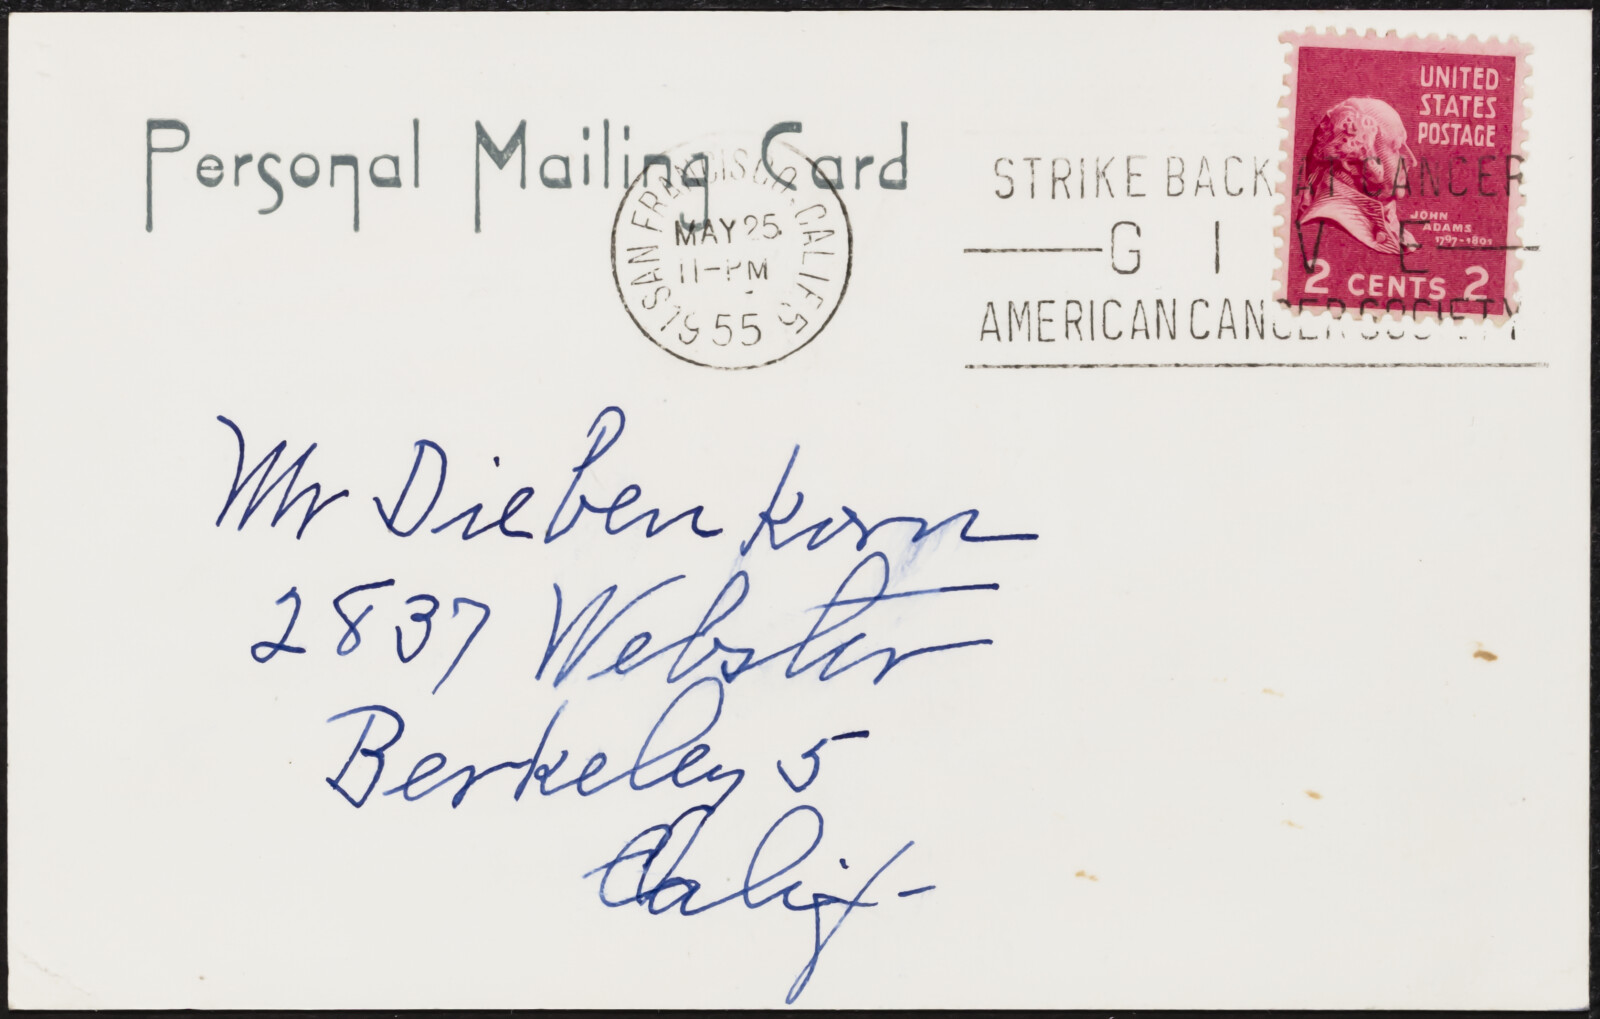 Personal Mailing Card
SAN FRANCISCO, CALIF.
MAY 25
11-PM
1955
STRIKE BACK AT CANCER
GIVE
AMERICAN CANCER SOCIETY
UNITED
STATES
POSTAGE
JOHN
ADAMS
1797-1801
2 CENTS 2
Mr Diebenkorn
2837 Webster
Berkeley 5
Calif-